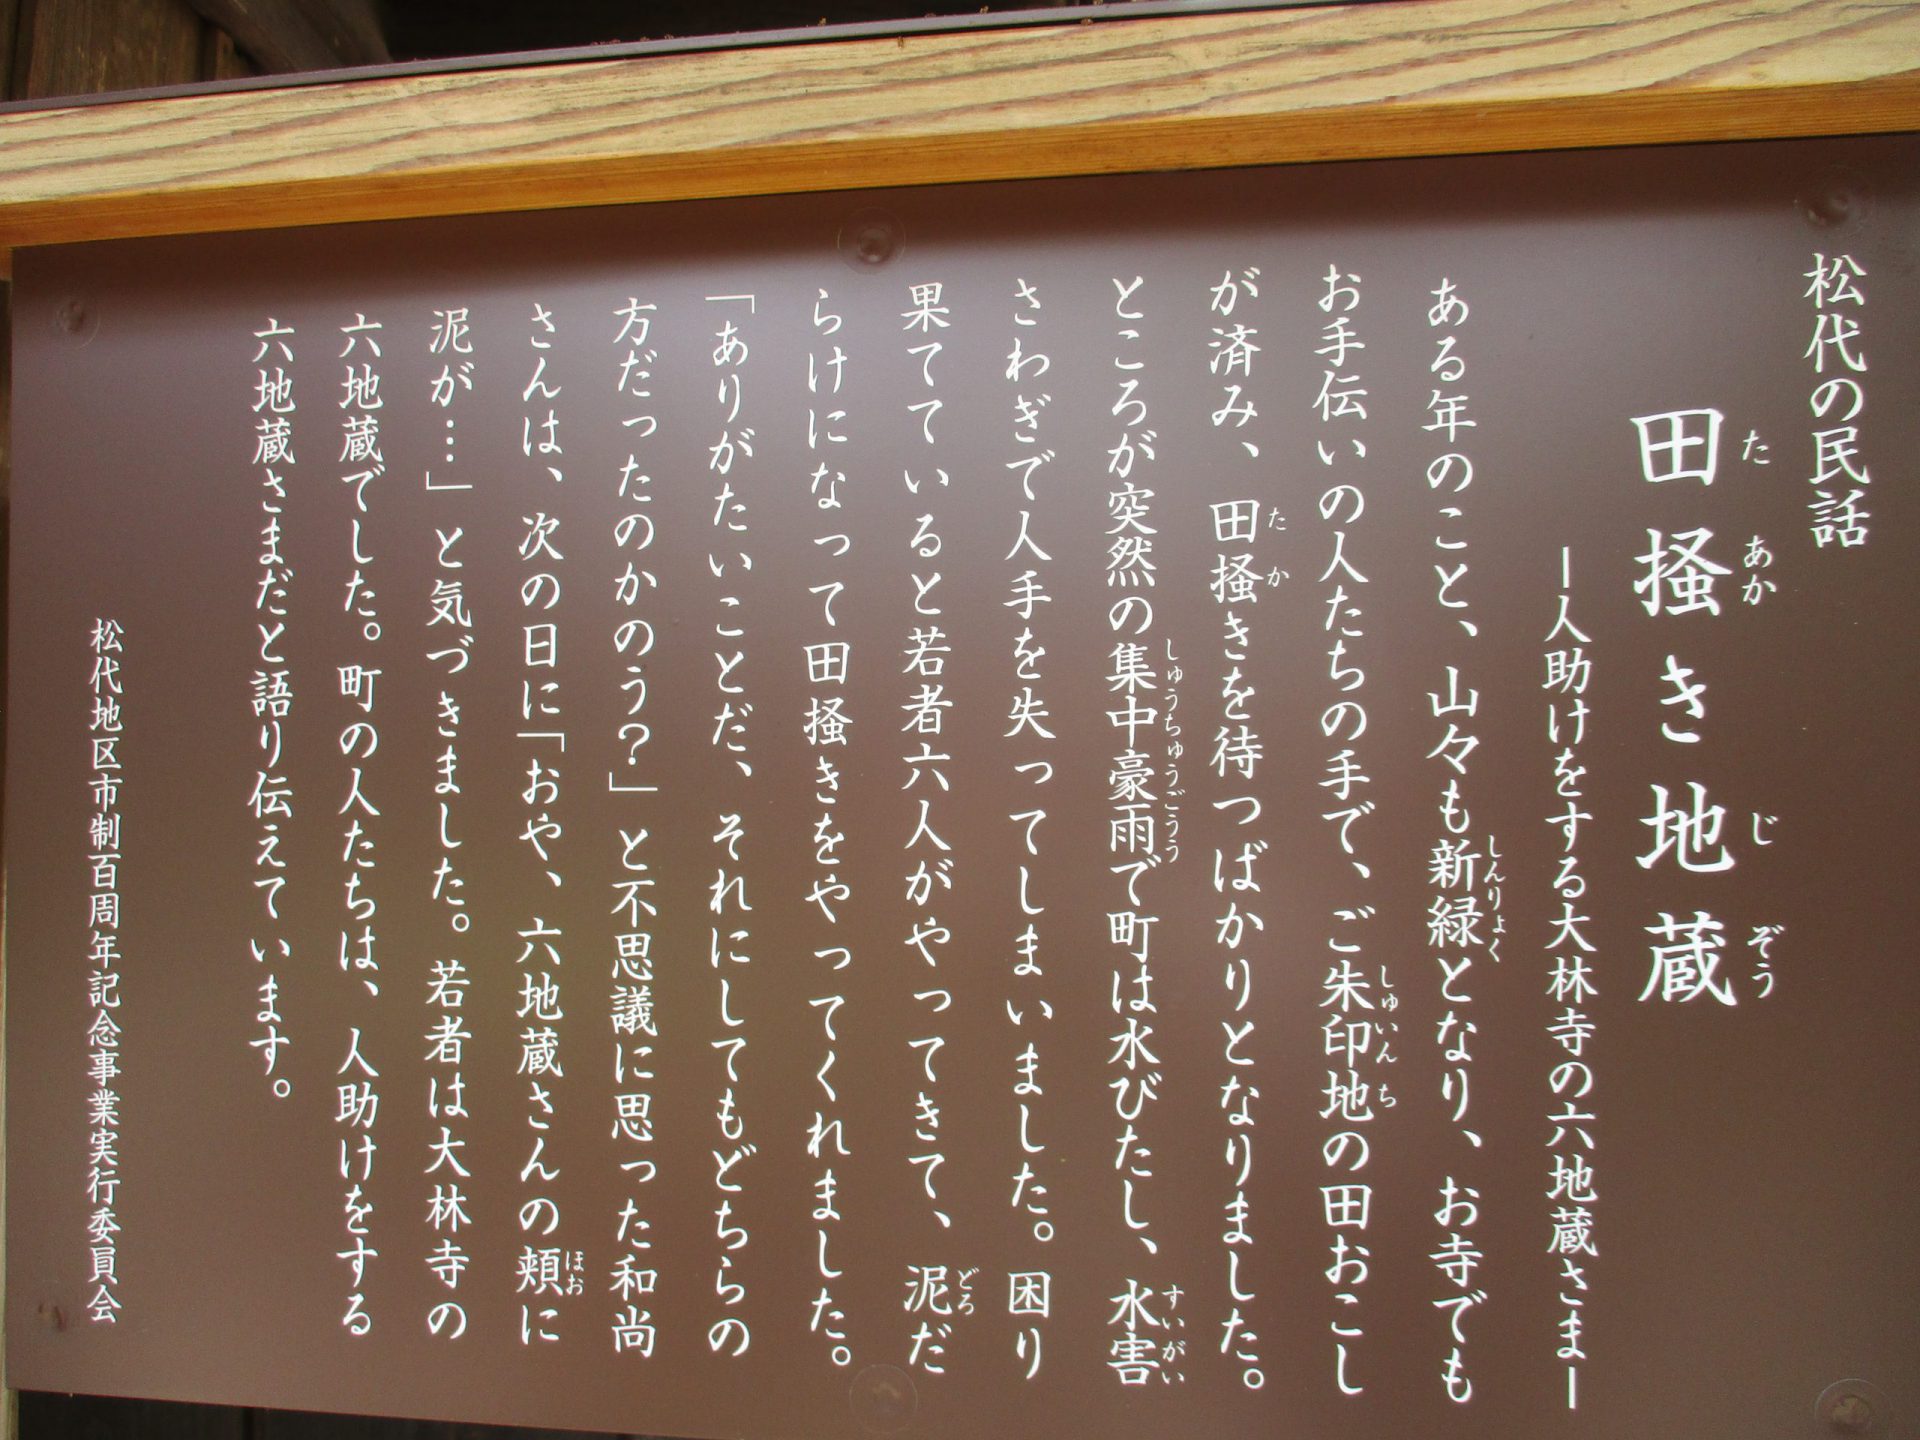 松代の民話
田掻き地蔵
たあかじぞう
ー人助けをする大林寺の六地蔵さまー
ある年のこと、山々も新緑となり、お寺でも
しんりょく
お手伝いの人たちの手で、ご朱印地の田おこし
しゅいんち
が済み、田掻きを待つばかりとなりました。
たか
ところが突然の集中豪雨で町は水びたし、水害
しゅうちゅうごうう すいがい
さわぎで人手を失ってしまいました。困り
果てていると若者六人がやってきて、泥だ
どろ
らけになって田掻きをやってくれました。
「ありがたいことだ、それにしてもどちらの
方だったのかのう?」と不思議に思った和尚
さんは、次の日に「おや、六地蔵さんの頬に
ほお
泥が…」と気づきました。若者は大林寺の
六地蔵でした。町の人たちは、人助けをする
六地蔵さまだと語り伝えています。
松代地区市制百周年記念事業実行委員会